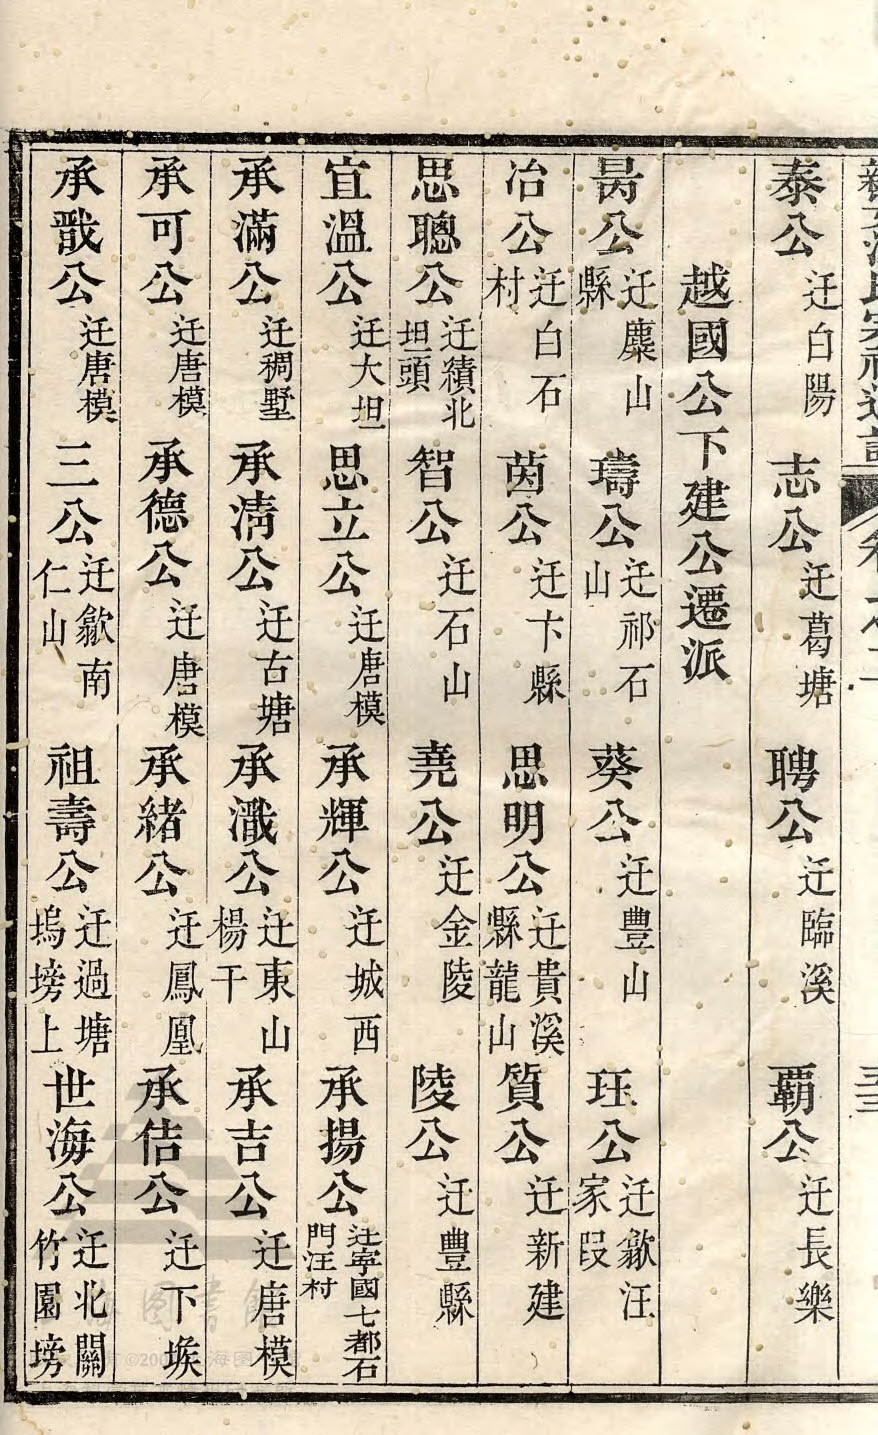 泰公 迁白陽 志公 迁葛塘 聘公 迁臨溪 覇公 迁長樂
越國公下建公遷派
昺公 迁麋山縣 璹公 迁祁石山 葵公 迁豐山 珏公 迁歙汪家段
冶公 迁白石村 茵公 迁卞縣 思明公 迁貴溪縣龍山 質公 迁新建
思聰公 迁績北坦頭 智公 迁石山 堯公 迁金陵 陵公 迁豐縣
宜溫公 迁大坦 思立公 迁唐模 承輝公 迁城西 承揚公 迁寧國七都石門汪村
承滿公 迁稠墅 承淸公 迁古塘 承濈公 迁東山楊干 承吉公 迁唐模
承可公 迁唐模 承德公 迁唐模 承緒公 迁鳳凰 承佶公 迁下堠
承戩公 迁唐模 三公 迁歙南仁山 祖壽公 迁過塘塢塝上 世海公 迁北關竹園塝